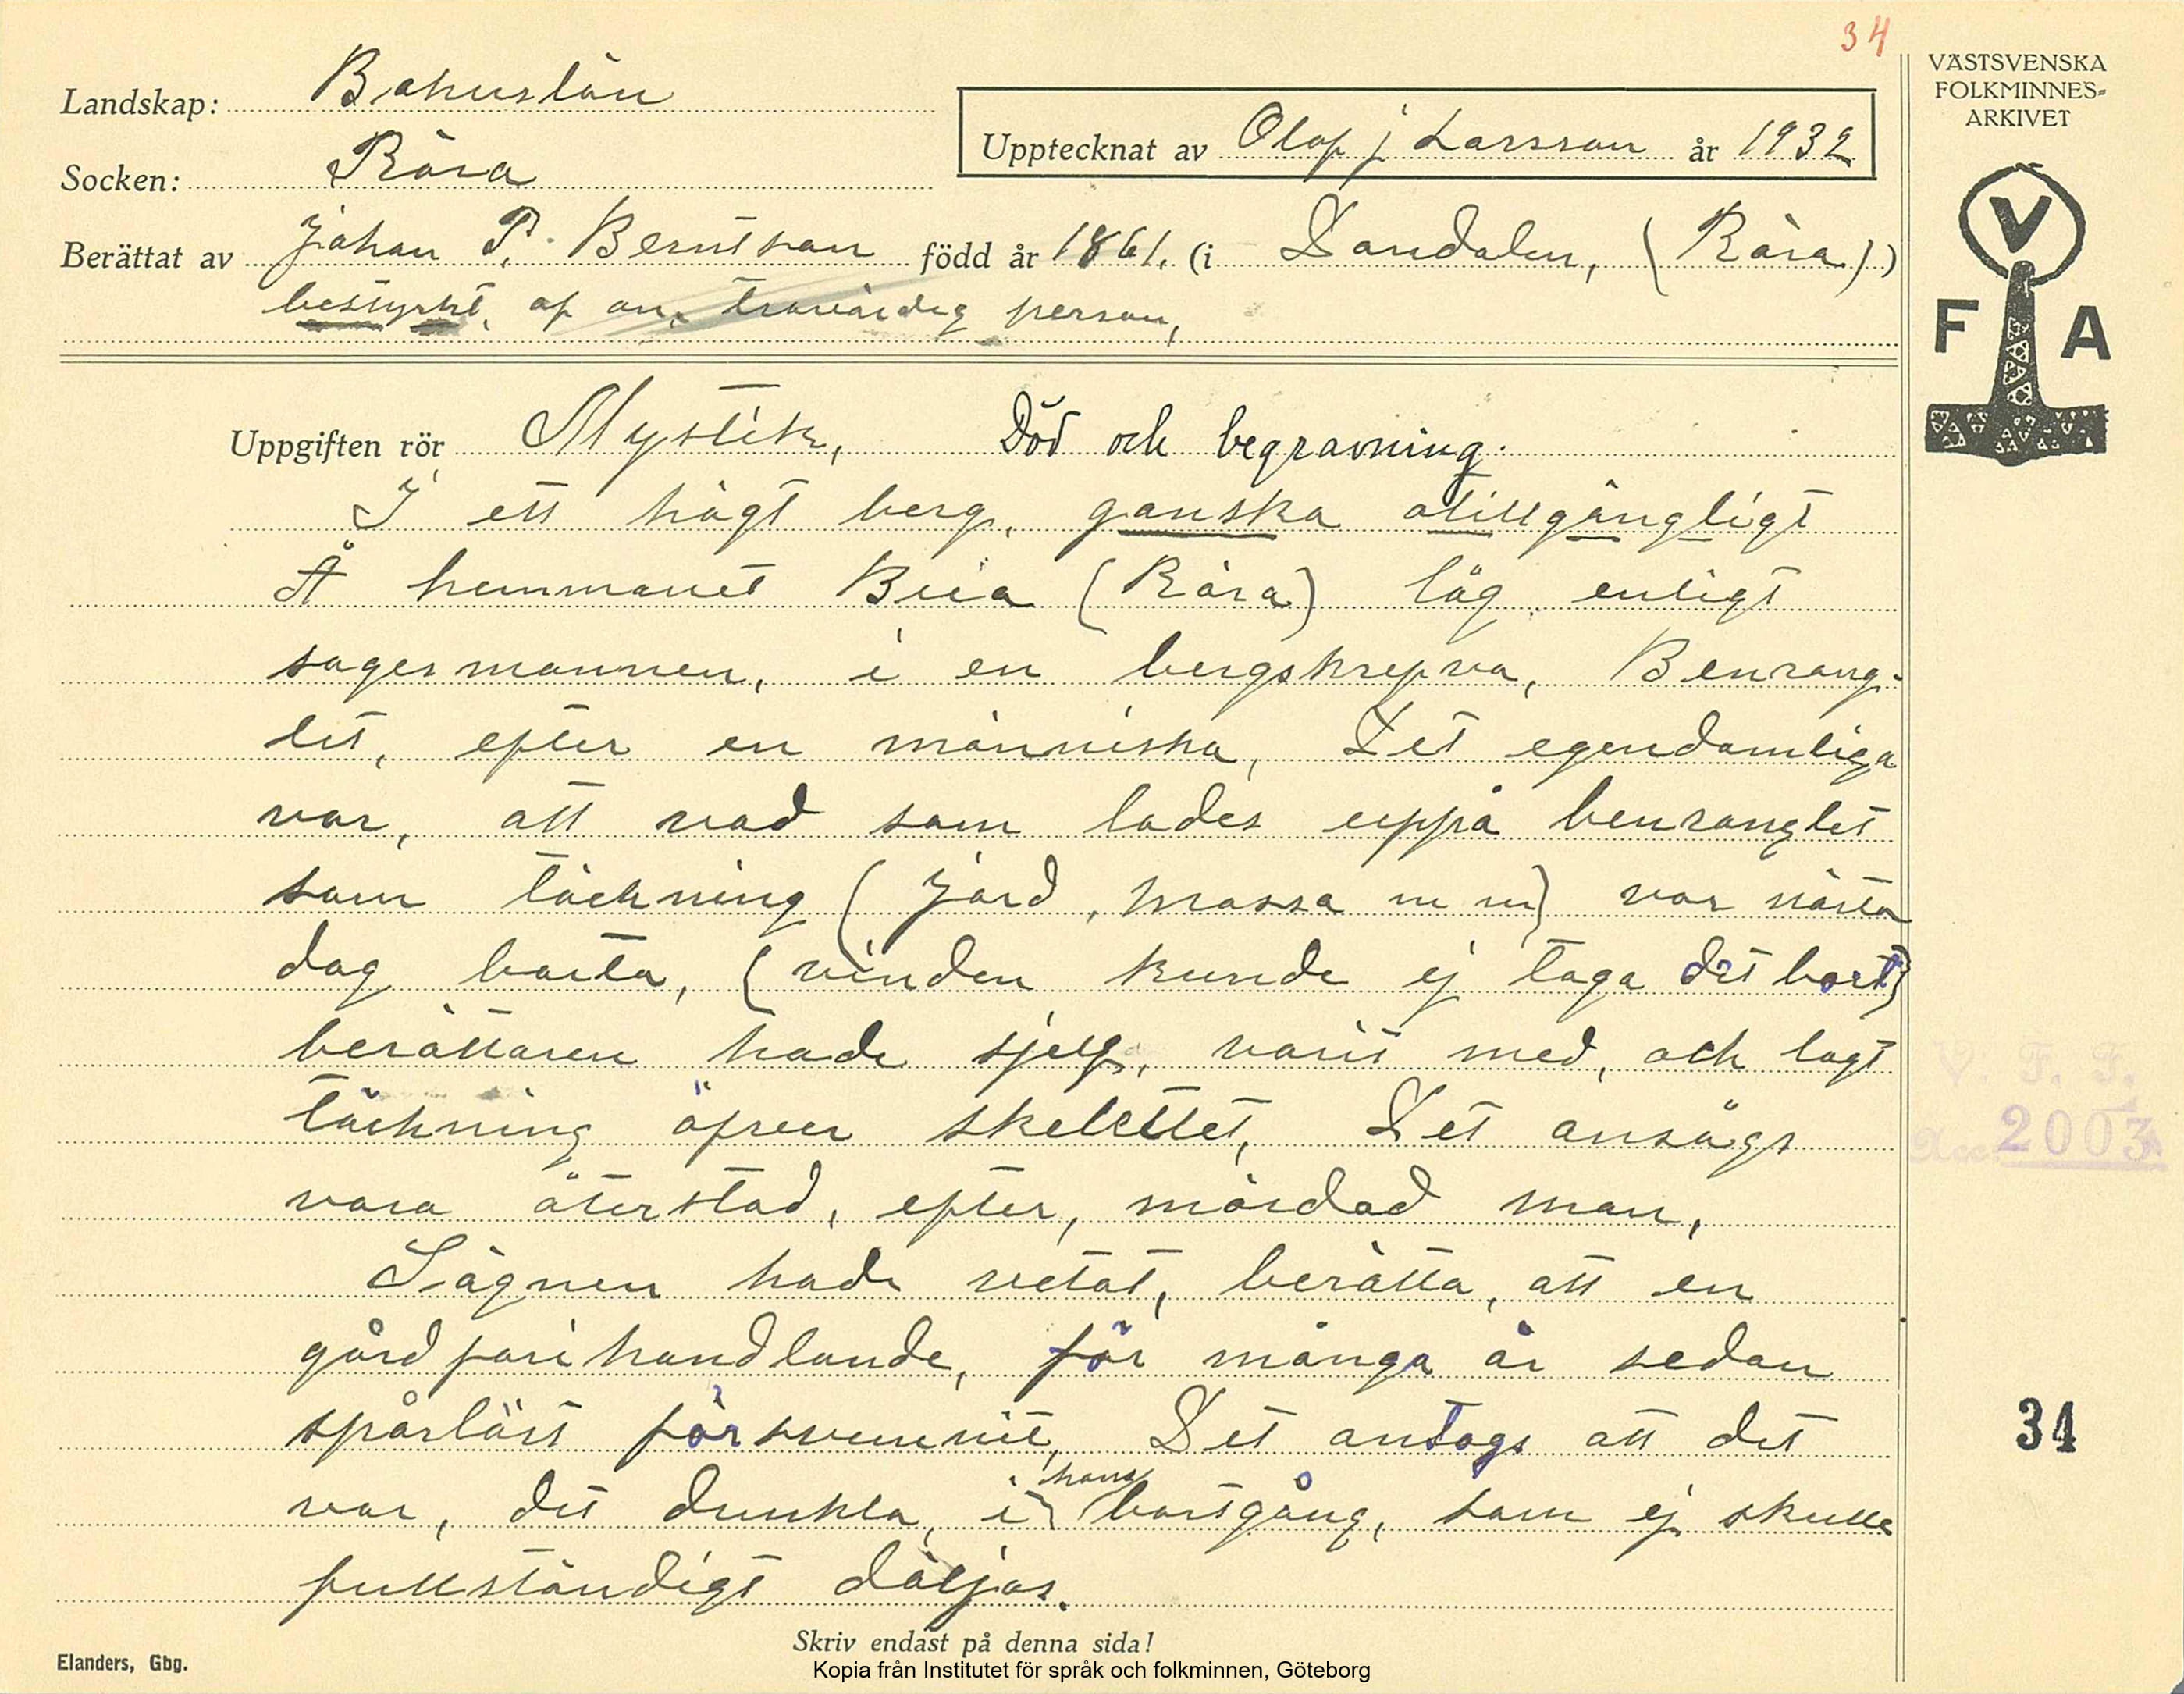 34
Landskap: Bohuslän
Socken: Röra
Upptecknat av Olof J Larsson år 1932
VÄSTSVENSKA
FOLKMINNES-
ARKIVET
V
F A
Berättat av Johan P. Berntson född år 1861. (i Sandalen, (Röra))
bestyrkt, af an. trovärdig person,
Uppgiften rör Mystik, Död och begravning.
I ett högt berg, ganska otillgängligt
Å hemmanet Bua (Röra) låg enligt
sagesmannen, i en bergskrefva, Benrang-
let, efter en människa, Det egendomliga
var, att vad som lades uppå benranglet
som täckning (jord, mossa m m) var nästa
dag borta, (vinden kunde ej taga det bort)
berättaren hade sjelf, varit med, och lagt
täckning öfver skelettet, Det ansågs
vara återstod, efter, mördad man,
Sägnen hade vetat, berätta, att en
gårdfarihandlande, för många år sedan
spårlöst försvunnit, Det antogs att det
var, det dunkla, i hans bortgång, som ej skulle
fullständigt döljas.
V. F. F.
Acc. 2003
34
Skriv endast på denna sida!
Elanders, Gbg.
Kopia från Institutet för språk och folkminnen, Göteborg